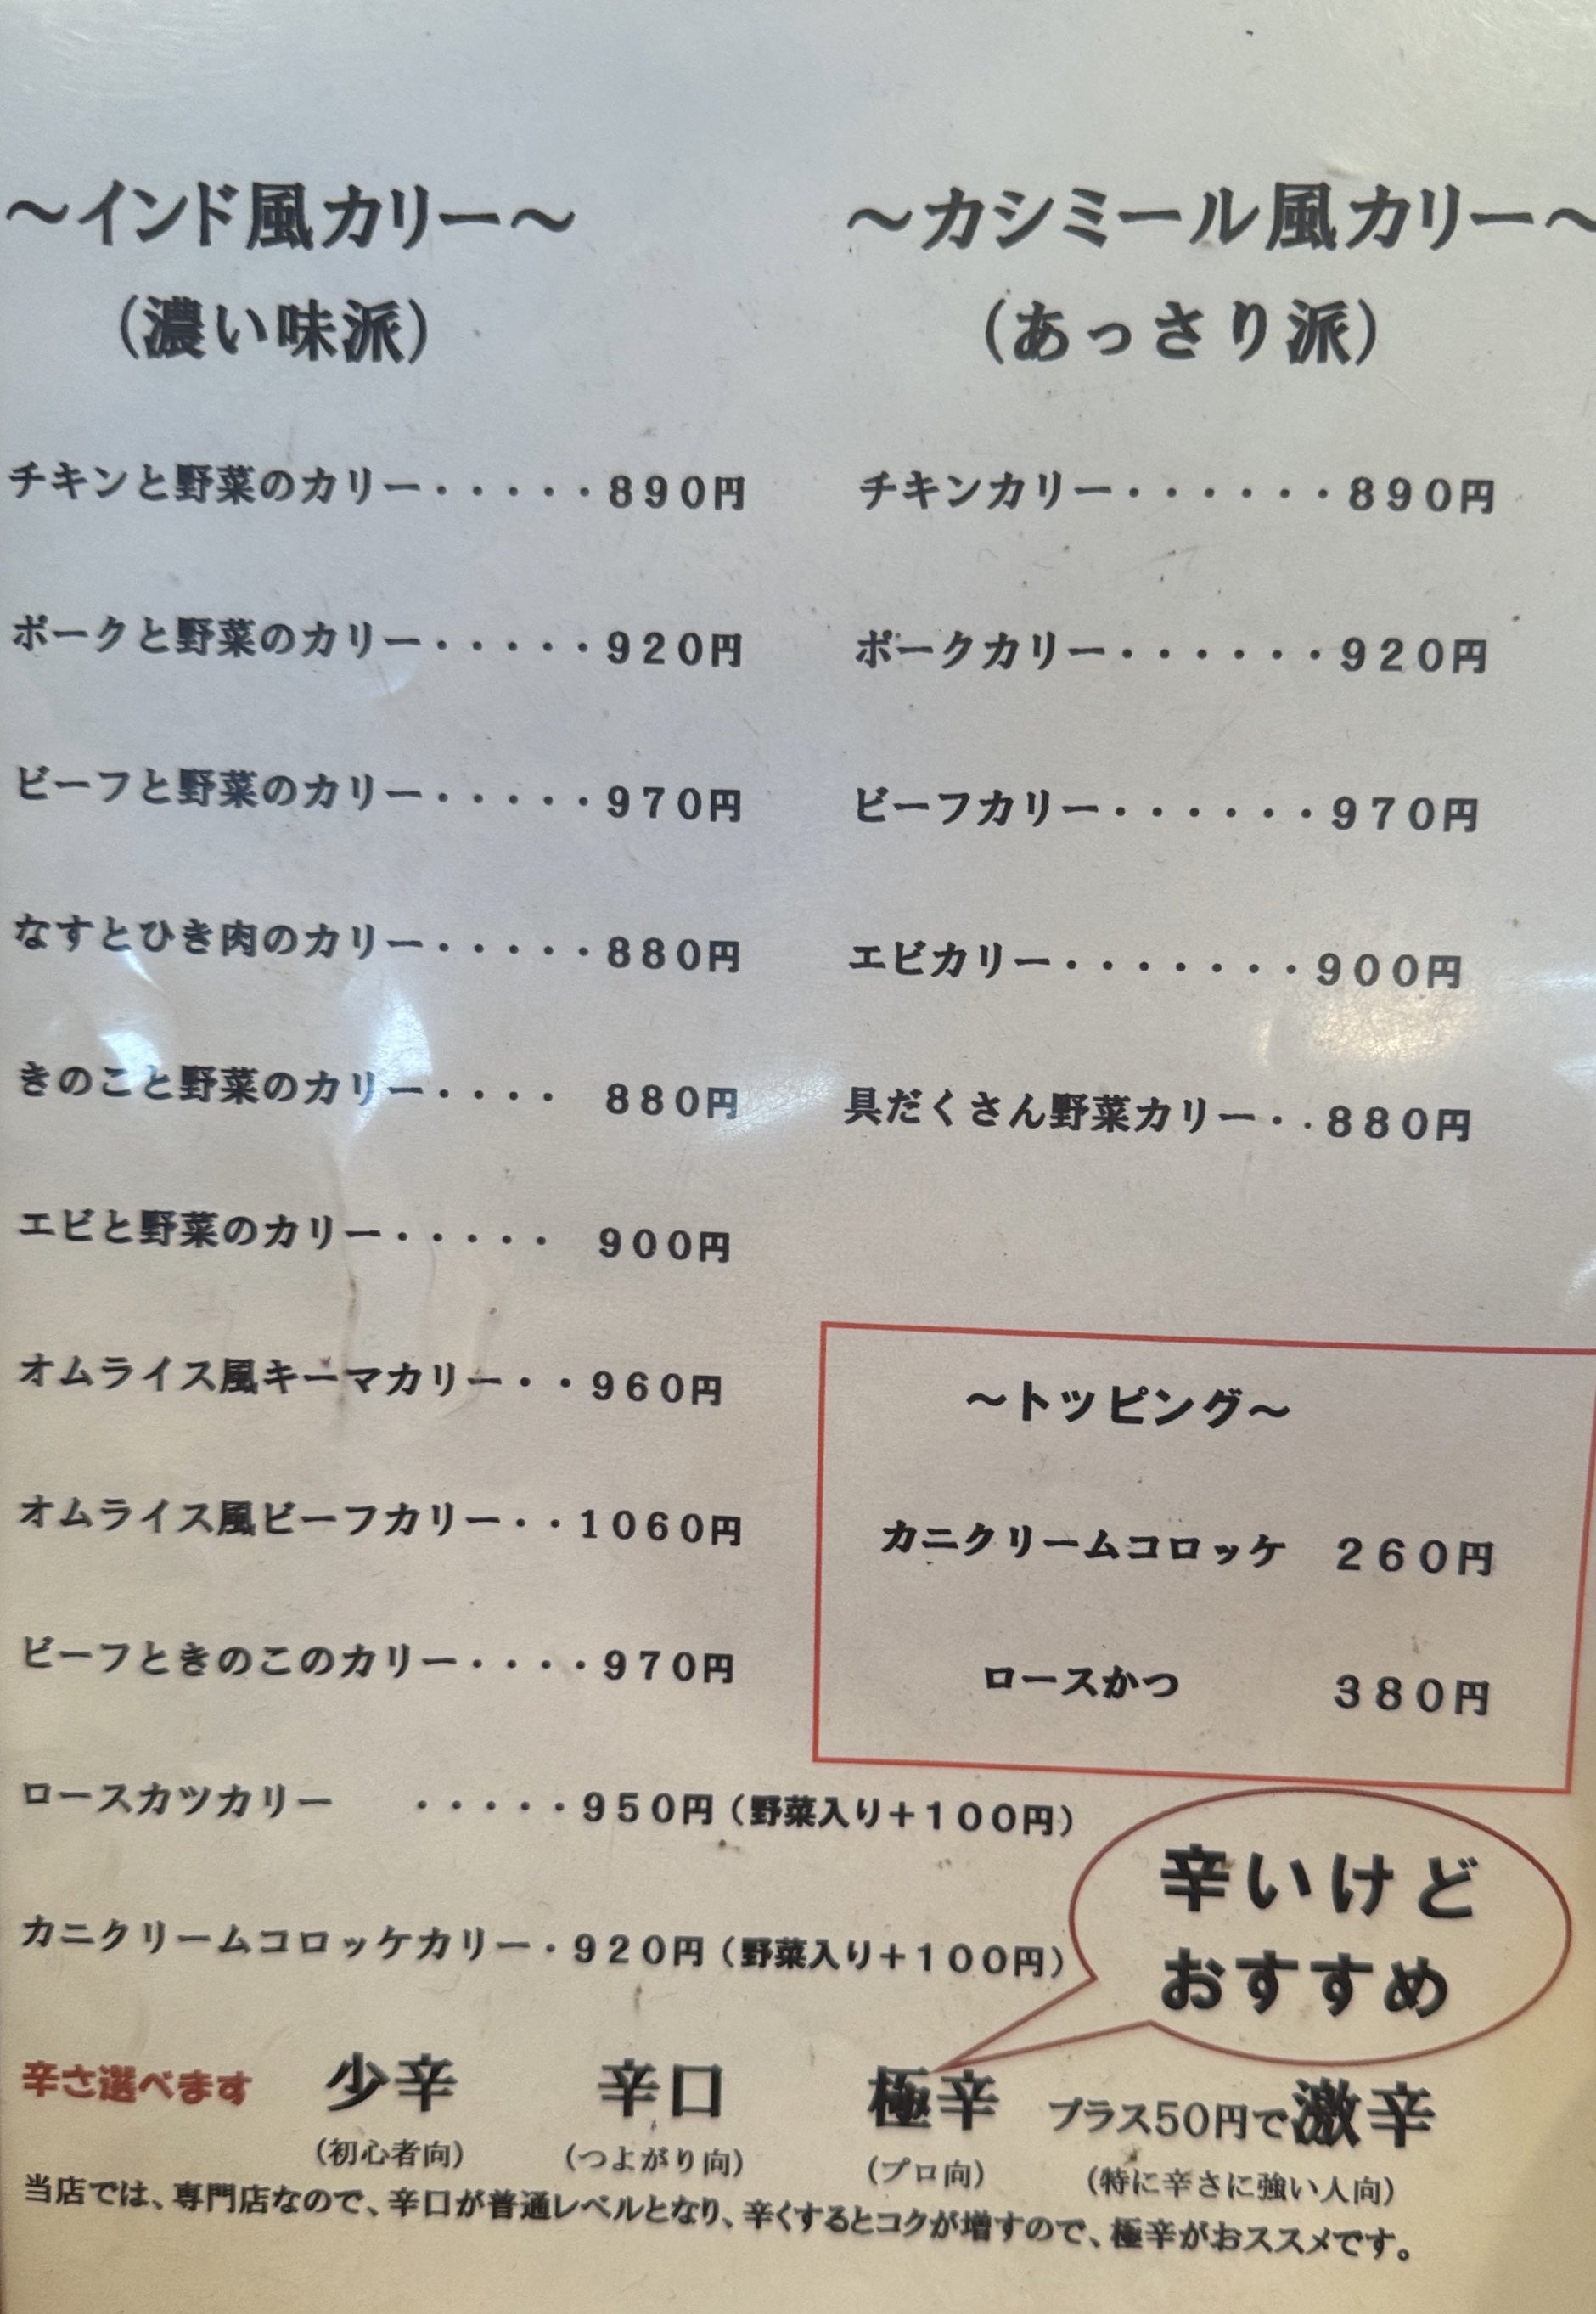 ～インド風カリー～
（濃い味派）
チキンと野菜のカリー・・・・・890円
ポークと野菜のカリー・・・・・920円
ビーフと野菜のカリー・・・・・970円
なすとひき肉のカリー・・・・・880円
きのこと野菜のカリー・・・・ 880円
エビと野菜のカリー・・・・・ 900円
オムライス風キーマカリー・・960円
オムライス風ビーフカリー・・1060円
ビーフときのこのカリー・・・・970円
ロースカツカリー ・・・・・950円（野菜入り＋100円）
カニクリームコロッケカリー・920円（野菜入り＋100円）
～カシミール風カリー～
（あっさり派）
チキンカリー・・・・・・890円
ポークカリー・・・・・・920円
ビーフカリー・・・・・・970円
エビカリー・・・・・・・900円
具だくさん野菜カリー・・880円
～トッピング～
カニクリームコロッケ 260円
ロースかつ 380円
辛いけど
おすすめ
辛さ選べます 少辛 辛口 極辛 プラス50円で激辛
（初心者向） （つよがり向） （プロ向） （特に辛さに強い人向）
当店では、専門店なので、辛口が普通レベルとなり、辛くするとコクが増すので、極辛がおススメです。